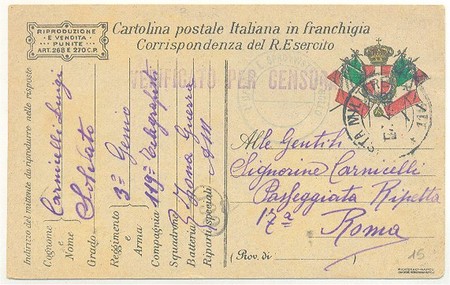 RIPRODUZIONE
E VENDITA
PUNITE
ART. 268 E 270 C.P.
Cartolina postale Italiana in franchigia
Corrispondenza del R. Esercito
VERIFICATO PER CENSURA
Indirizzo del mittente da riprodurre nelle risposte
Cognome Carnicelli Luigi
e
Nome
Grado Soldato
Reggimento 3º Genio
e
Arma
Compagnia 119ª Telegrafisti
Squadrone
Batteria Zona Guerra
Riparti speciali
Alle Gentili
Signorine Carnicelli
Passeggiata Ripetta
Roma
(Prov. di
15